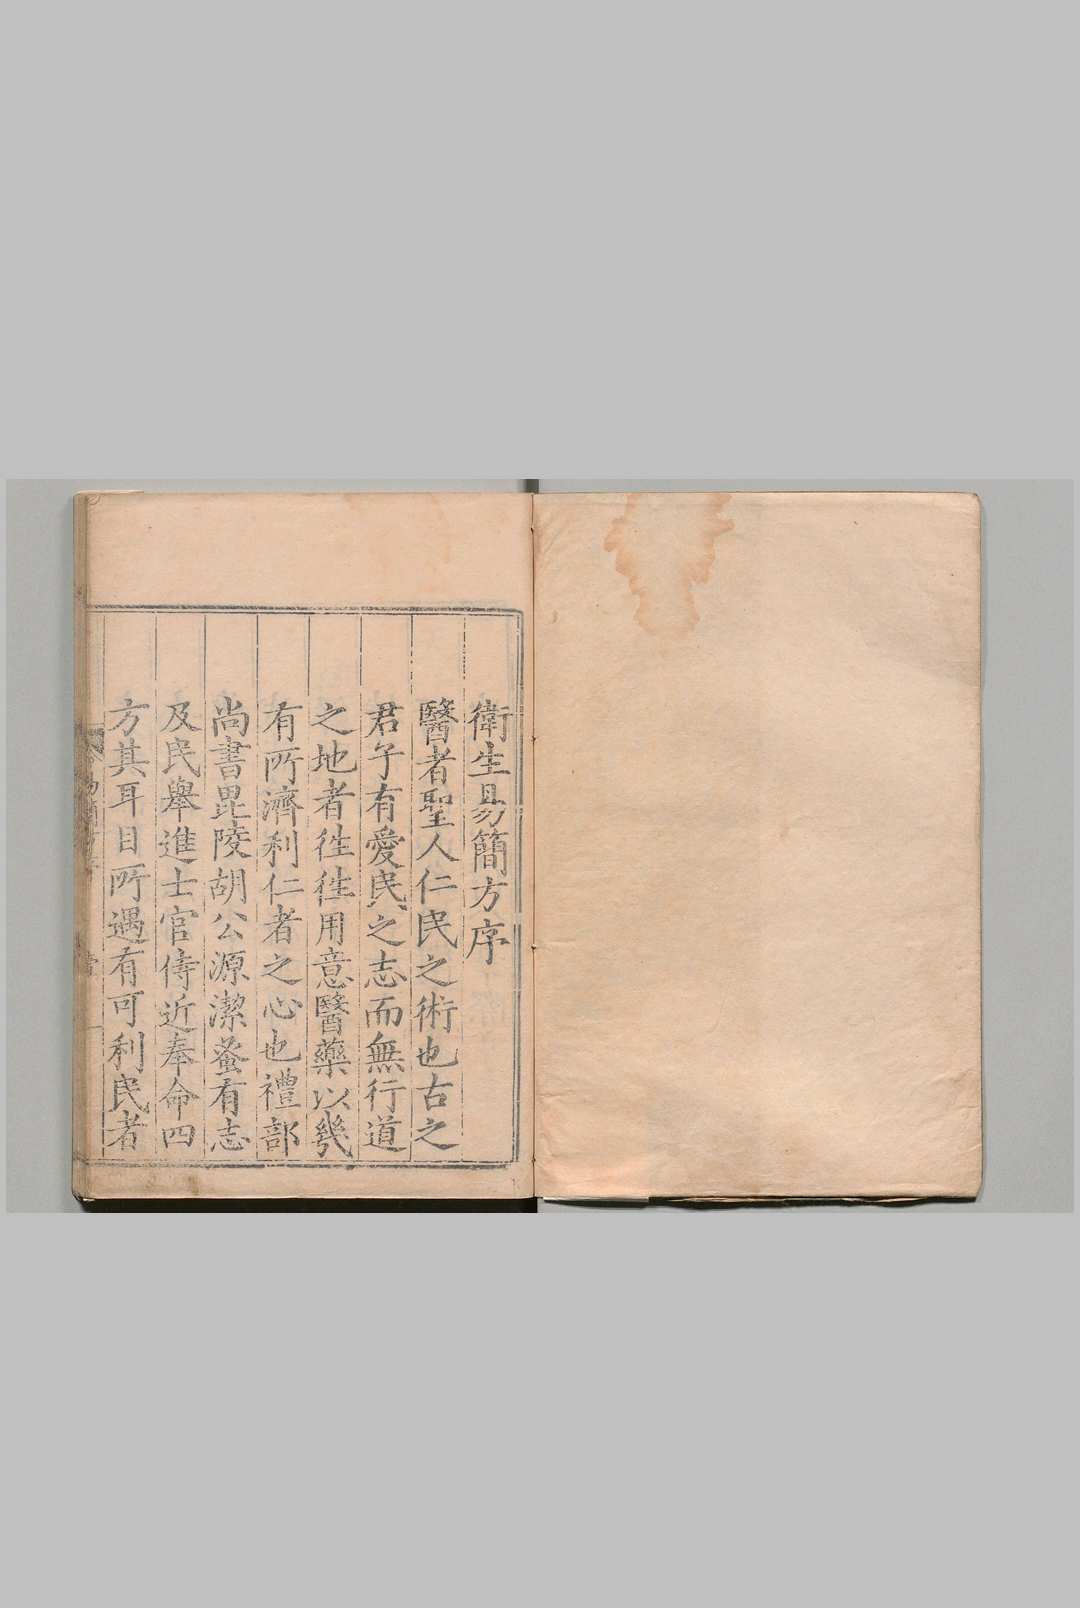 衛生易簡方序
醫者聖人仁民之術也古之
君子有愛民之志而無行道
之地者徃徃用意醫藥以幾
有所濟利仁者之心也禮部
尚書毘陵胡公源潔蚤有志
及民舉進士官侍近奉命四
方其耳目所遇有可利民者